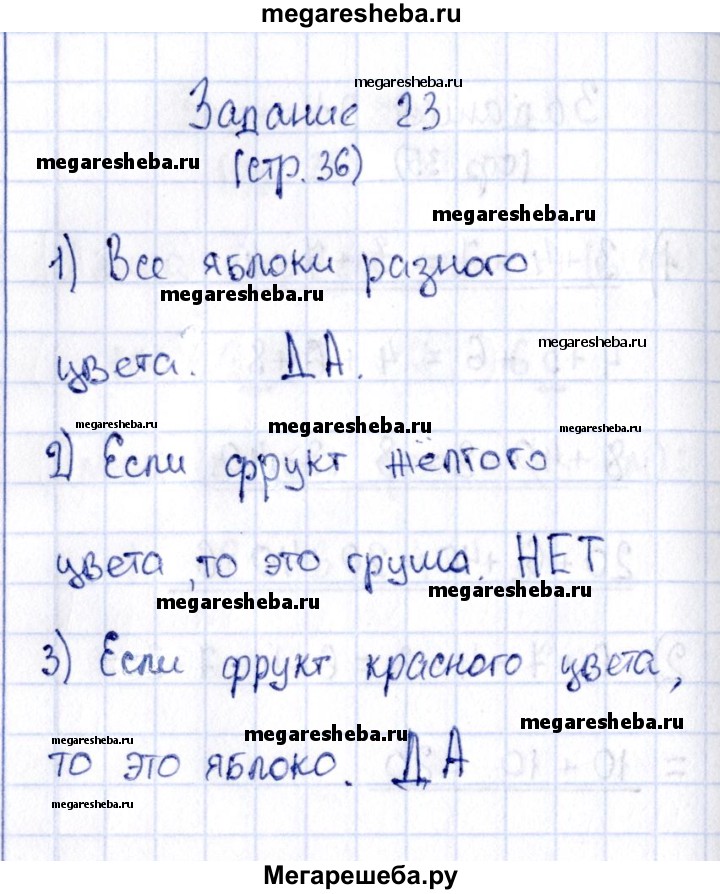 megaresheba.ru
megaresheba.ru
Задание 23
megaresheba.ru
(стр. 36)
megaresheba.ru
1) Все яблоки разного
megaresheba.ru
megaresheba.ru
цвета. ДА.
megaresheba.ru
megaresheba.ru
megaresheba.ru
2) Если фрукт жёлтого
цвета, то это груша. НЕТ
megaresheba.ru
megaresheba.ru
3) Если фрукт красного цвета,
megaresheba.ru
megaresheba.ru
megaresheba.ru
то это яблоко. ДА
megaresheba.ru
Мегарешеба.ру